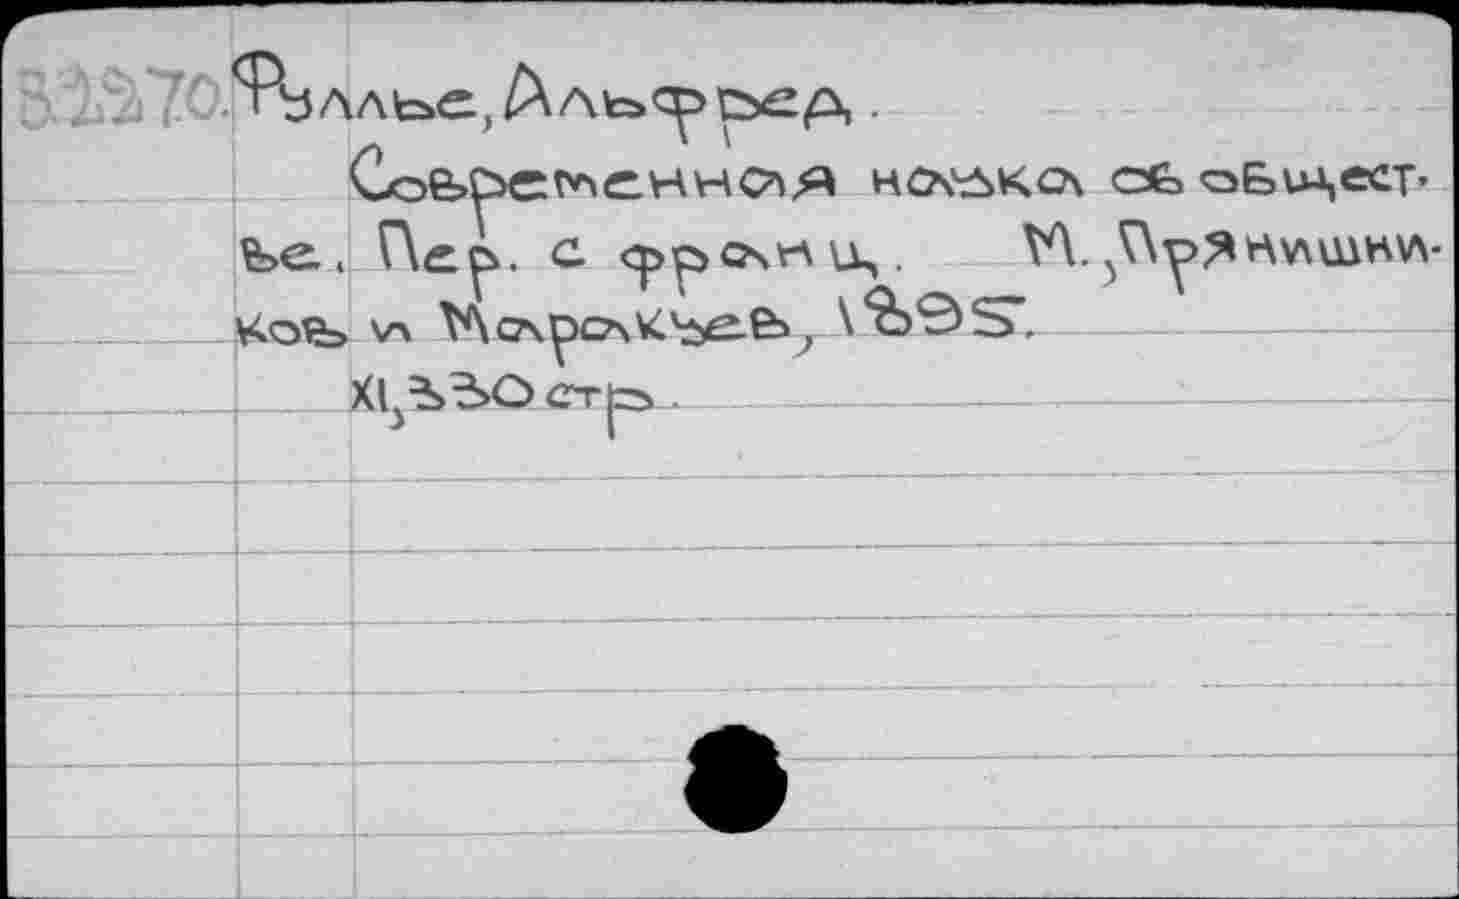 32270. Фуллье, Альфред.
Современная наука об общест-
ве. Пер. с франц. М., Прянишни-
ков и Маракуев, 1895.
XI, 330 стр.